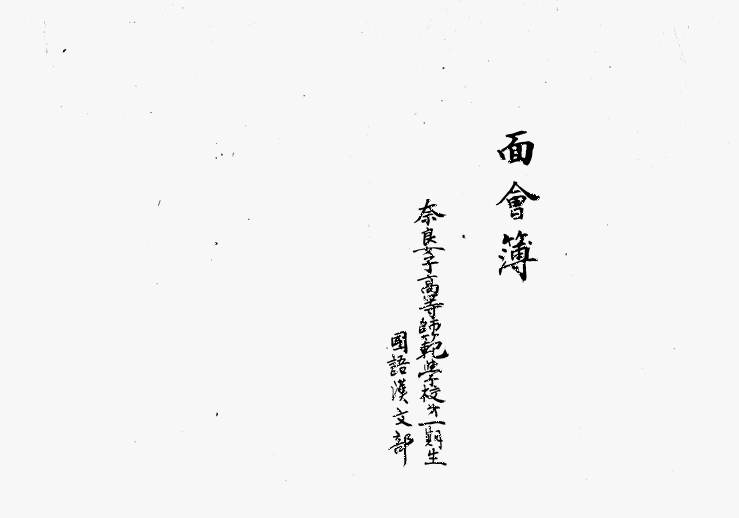 面會簿
奈良女子高等師範學校才一期生
國語漢文部